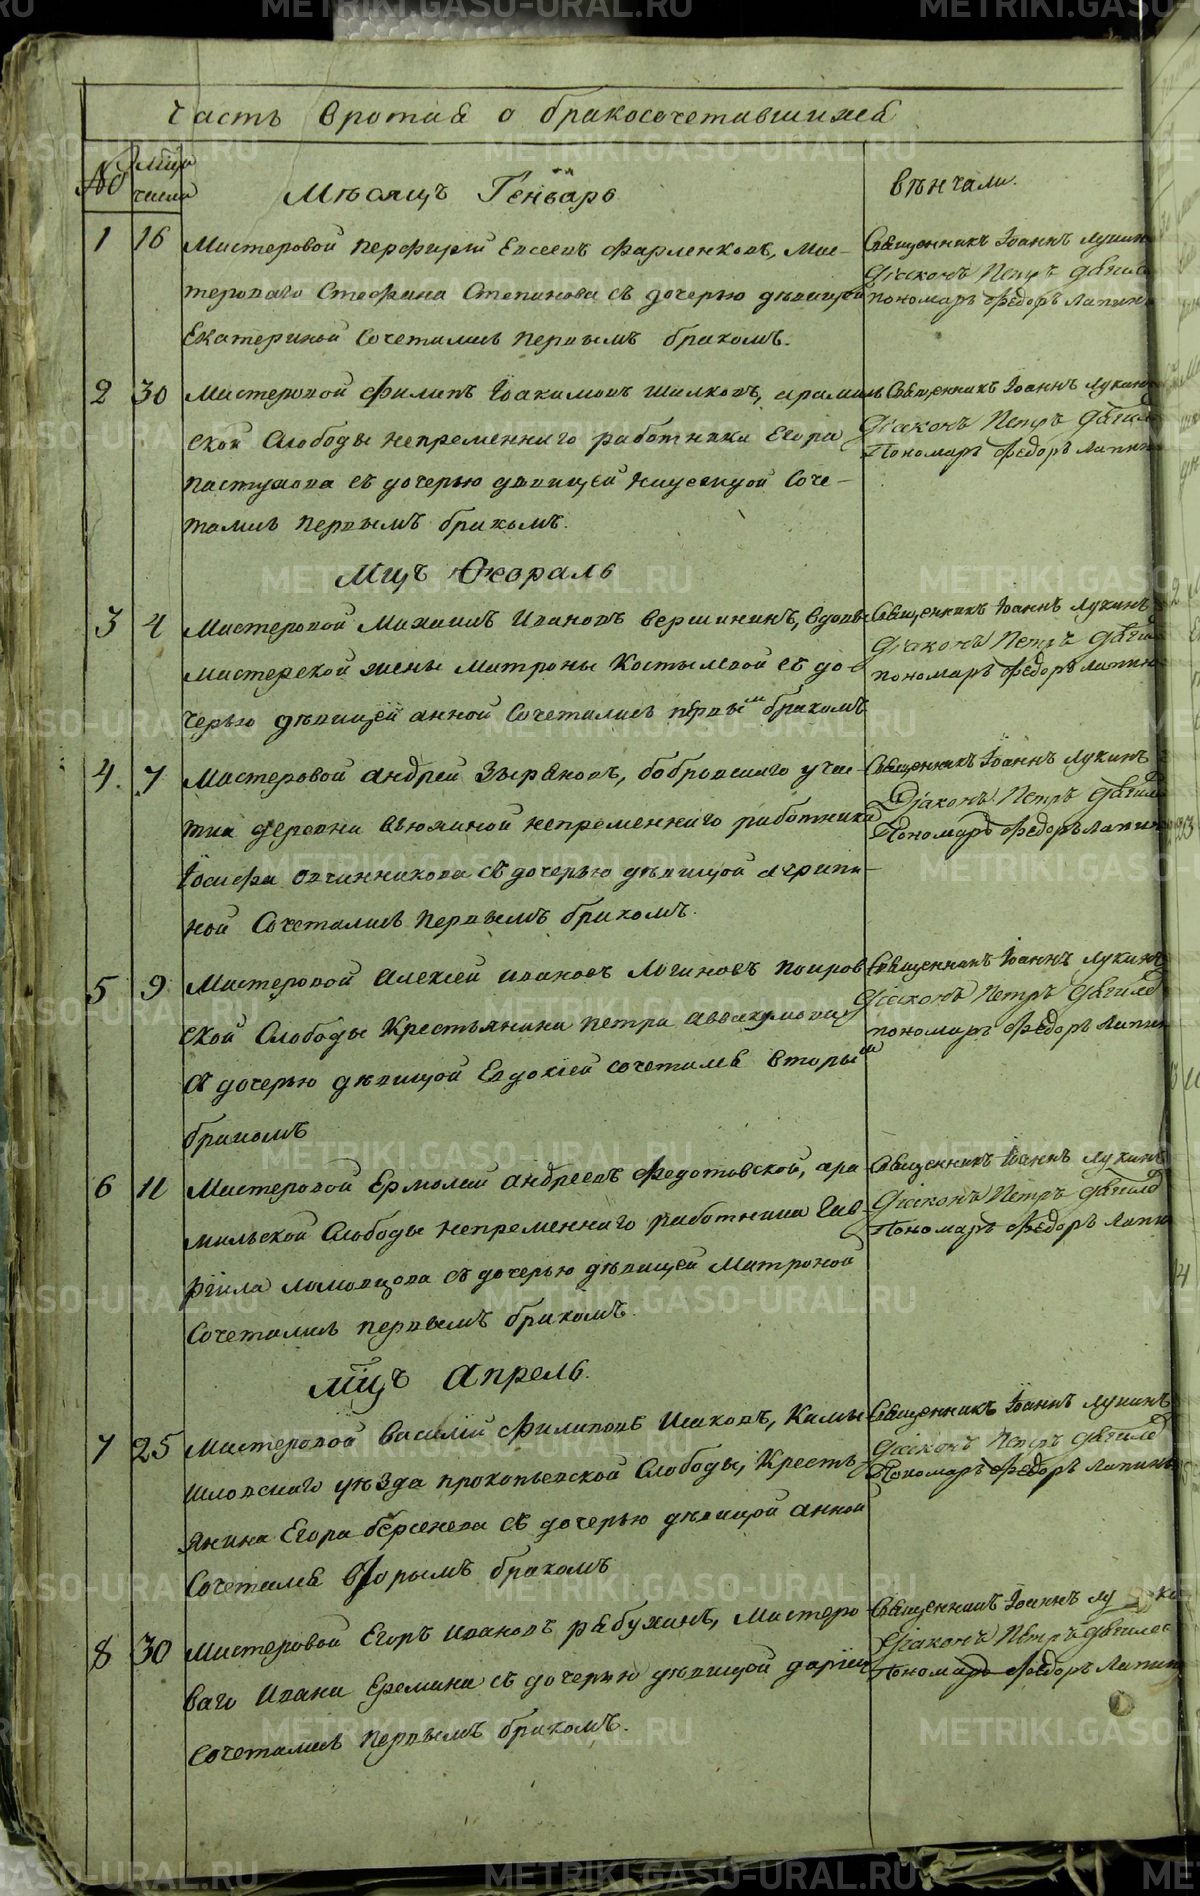 Часть вротая о бракосочетавшихся
№ Мцъ числа
Мѣсяцъ Генварь
вѣнчали.
1 16 Мастеровой Перфирій Евсеевъ Фарленковъ, Мас-
тероваго Стефана Степанова съ дочерью дѣвицей
Екатериной Сочетались первымъ бракомъ.
Священникъ Іоаннъ Лукинъ
Діаконъ Петръ
пономарь Федоръ Лапин
2 30 Мастеровой Филипъ Іоакимовъ Шилковъ, арамиль
ской Слободы непременнаго работника Егора
Пастухова съ дочерью девицей Соче-
тались первымъ бракомъ.
Священникъ Іоаннъ Лукин
Діаконъ Петръ
Пономарь Федоръ Лапин
Мцъ Февраль
3 4 Мастеровой Михаилъ Ивановъ Вершининъ, вдовы
мастерской жены Матроны Костылевой съ до-
черью дѣвицей анной Сочетались первым бракомъ
Священникъ Іоаннъ Лукинъ
Діаконъ Петръ
пономарь Федоръ Лапин
4. 7 Мастеровой андрей Зыряновъ, бобровскаго учас-
тка деревни вьюхиной непременнаго работника
Іосифа Овчинникова съ дочерью дѣвицой агрипи-
ной Сочетались первымъ бракомъ.
Священникъ Іоаннъ Лукинъ
Діаконъ Петръ
Пономарь Федоръ Лапин
5 9 Мастеровой Алексей ивановъ Логиновъ покров
ской Слободы Крестьянина петра аввакумова
съ дочерью дѣвицой Евдокіей сочетался вторым
бракомъ
Священникъ Іоаннъ Лукинъ
Діаконъ Петръ
пономарь Федоръ Лапин
6 11 Мастеровой Ермолай андреевъ Федотовской, ара
мильской Слободы непременнаго работника Гав-
ріила ломовцова съ дочерью дѣвицей Матроной
Сочетались первымъ бракомъ.
Священникъ Іоаннъ Лукинъ
Діаконъ Петръ
Пономарь Федоръ Лапин
Мцъ Апрель.
7 25 Мастеровой Василій Филиповъ Исаковъ, Камы-
шловскаго уѣзда прокопьевской Слободы, Кресть-
янина Егора берсенева съ дочерью дѣвицой анной
Сочетался вторымъ бракомъ
Священникъ Іоаннъ Лукинъ
Діаконъ Петръ
Пономарь Федоръ Лапинъ
8 30 Мастеровой Егоръ Ивановъ рябухинъ, Мастеро
ваго Ивана Еремина съ дочерью дѣвицой даріей
Сочетались первымъ бракомъ.
Священникъ Іоаннъ Лу ки
Діаконъ Петръ
Пономарь Федоръ Лапин
METRIKI.GASO-URAL.RU